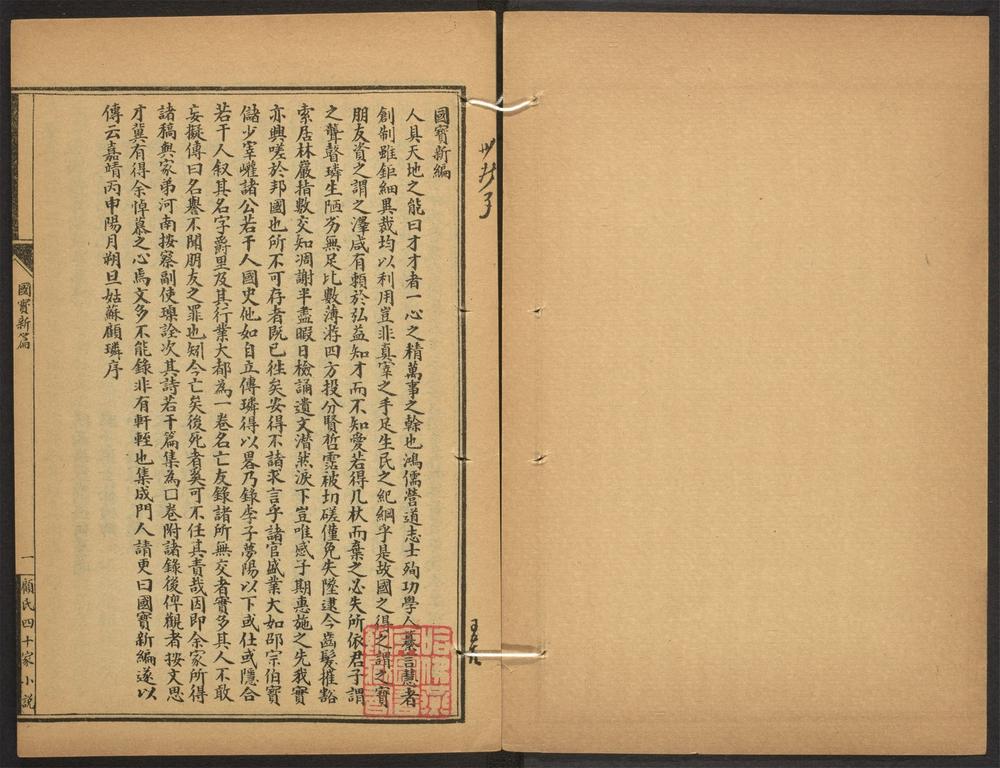 國寳新編
人具天地之能曰才才者一心之精萬事之榦也鴻儒營道志士殉功學人纂言慧者
創制雖鉅細異裁均以利用豈非真宰之手足生民之紀綱乎是故國之得之謂之寳
朋友資之謂之澤咸有賴於弘益知才而不知愛若得几杖而棄之必失所依君子謂
之聾瞽璘生陋劣無足比數薄游四方投分賢哲霑被切磋僅免失墜逮今齒髮摧豁
索居林巖指數交知凋謝半盡暇日檢誦遺文潸然淚下豈唯感子期惠施之先我實
亦興嗟於邦國也所不可存者既已徃矣安得不諸求言乎諸官盛業大如邵宗伯寳
儲少宰巏諸公若干人國史他如自立傳璘得以畧乃錄李子夢陽以下或仕或隱合
若干人叙其名字爵里及其行業大都為一卷名亡友錄諸所無交者實多其人不敢
妄擬傳曰名譽不聞朋友之罪也矧今亡矣後死者奚可不任其責哉因即余家所得
諸稿與家弟河南按察副使瑮詮次其詩若干篇集為口卷附諸錄後俾觀者按文思
才冀有得余悼慕之心焉文多不能錄非有軒輊也集成門人請更曰國寳新編遂以
傳云嘉靖丙申陽月朔旦姑蘇顧璘序
國寳新篇
一
顧氏四十家小說